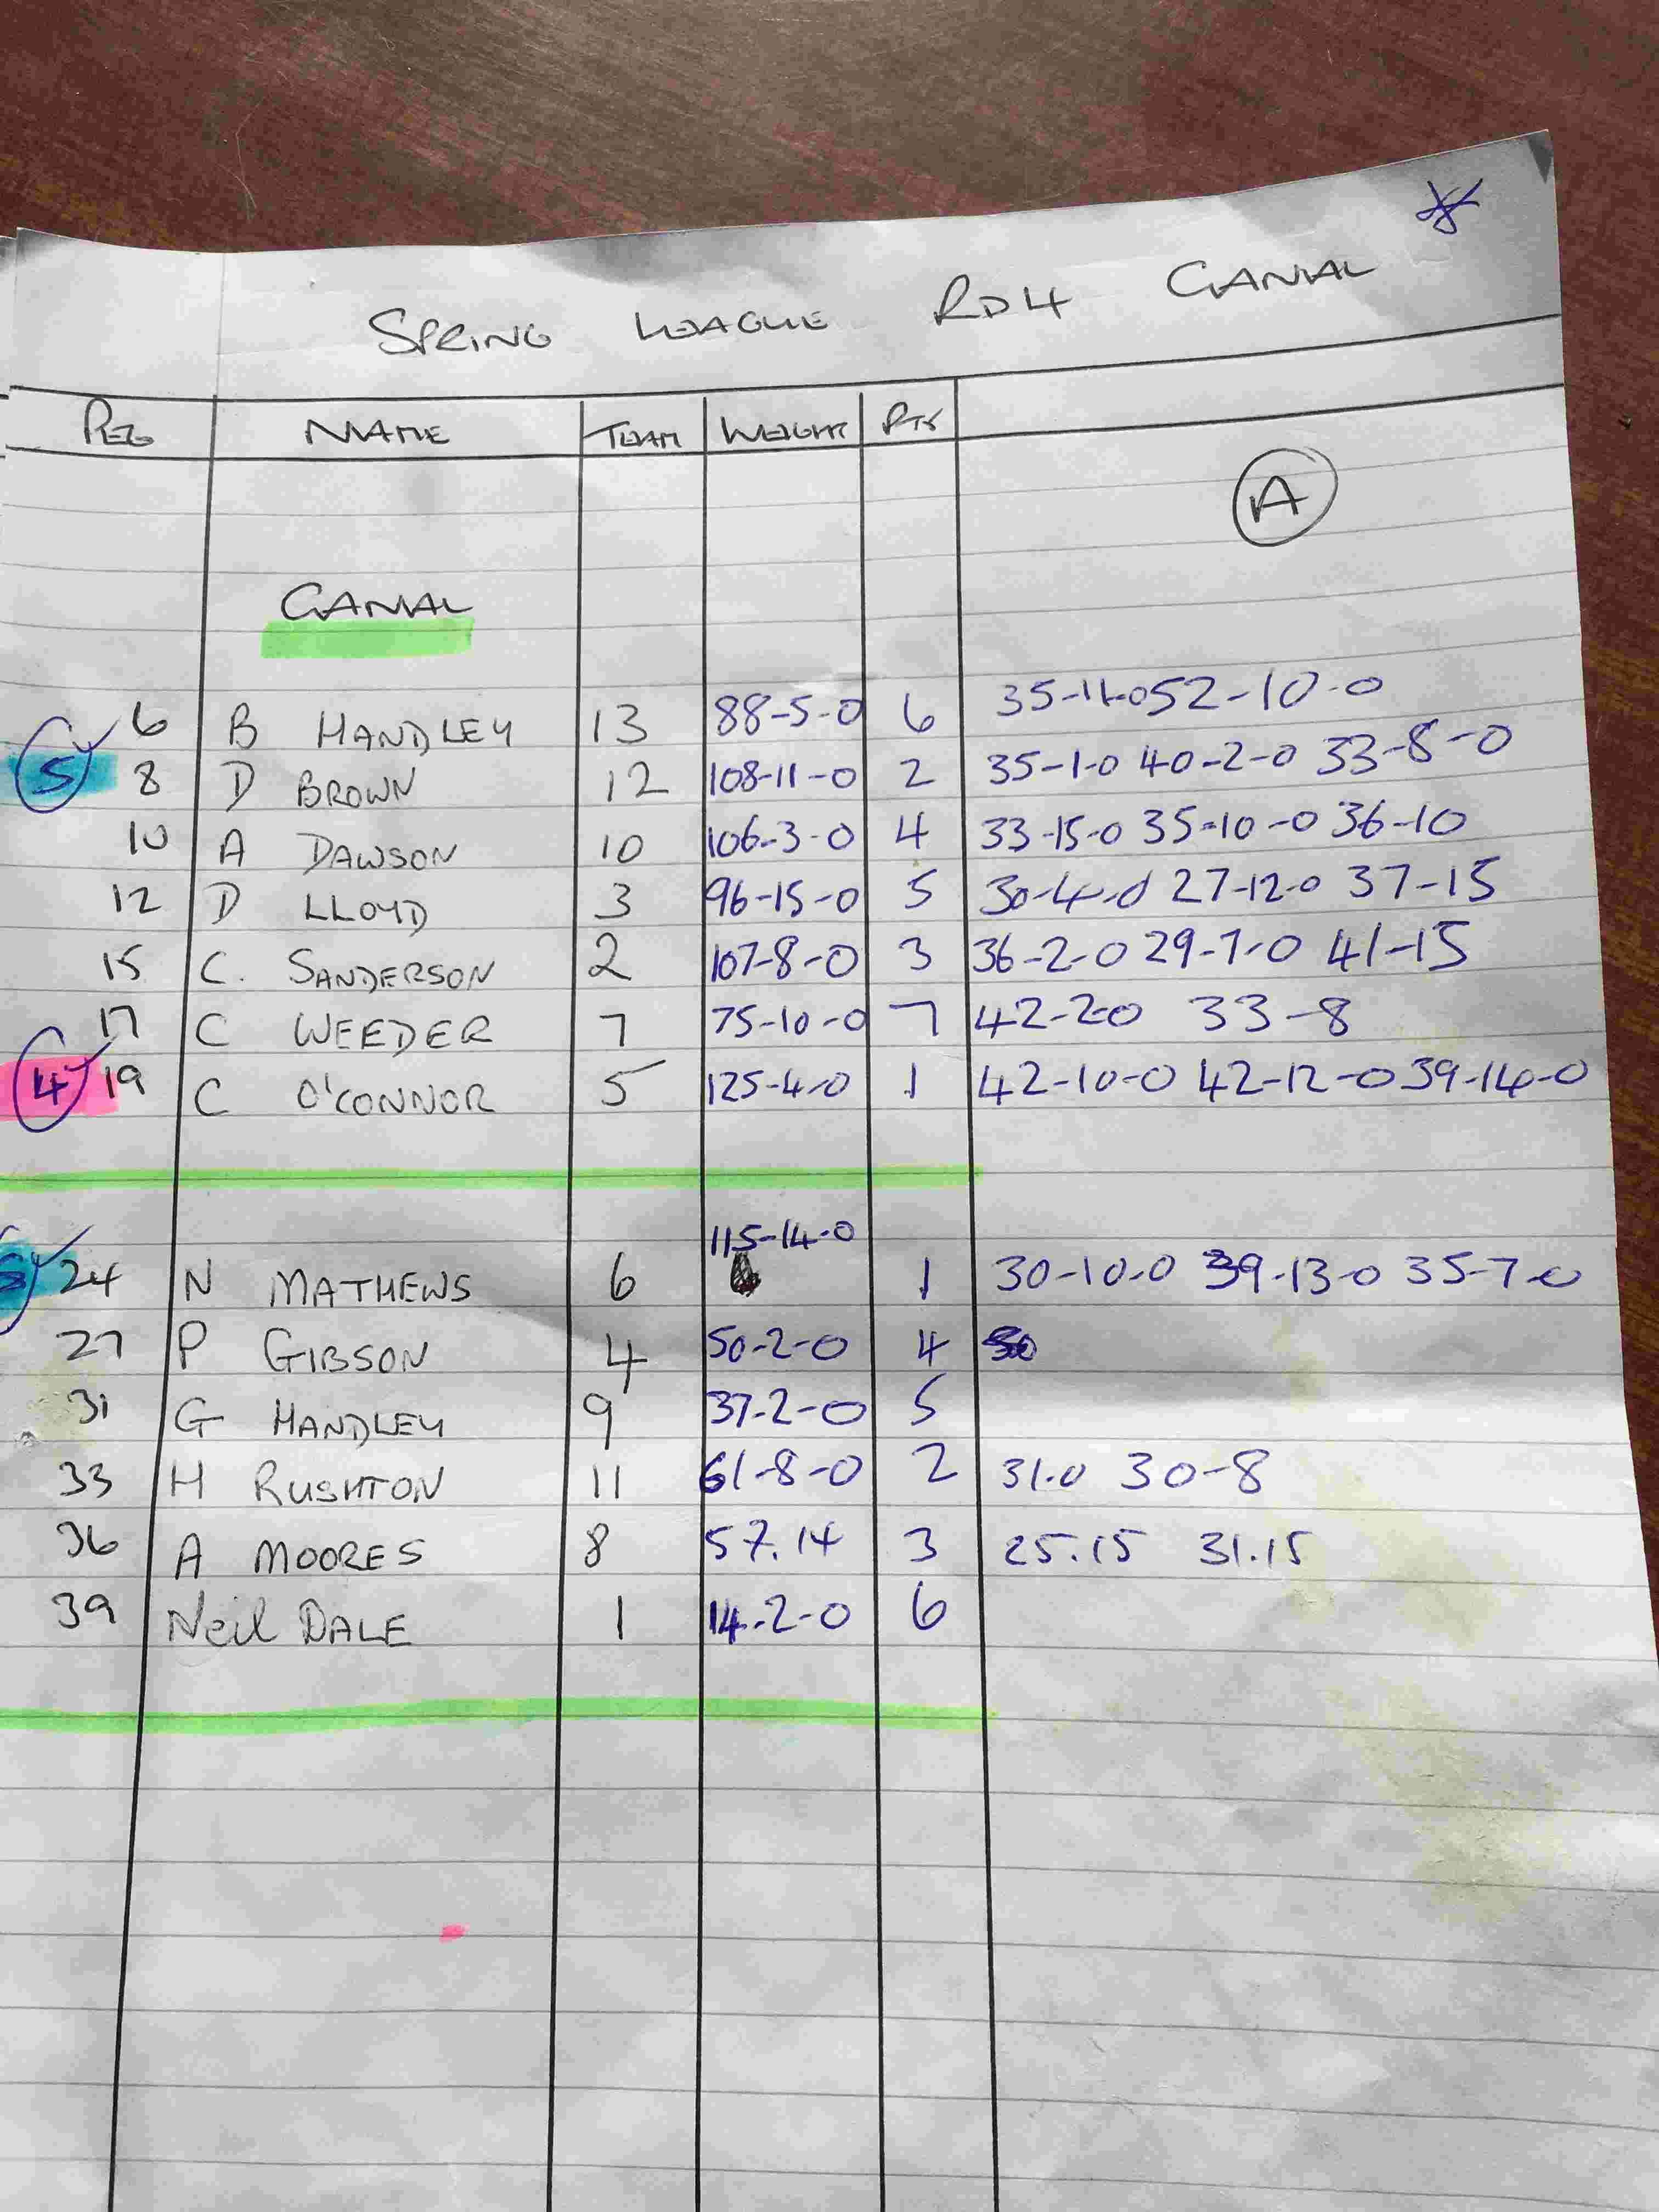 SPRING LEAGUE RD4 CANAL
PEG NAME TEAM WEIGHT PTS
A
CANAL
6 B HANDLEY 13 88-5-0 6 35-11-0 52-10-0
5 8 D BROWN 12 108-11-0 2 35-1-0 40-2-0 33-8-0
10 A DAWSON 10 106-3-0 4 33-15-0 35-10-0 36-10
12 D LLOYD 3 96-15-0 5 30-4-0 27-12-0 37-15
15 C. SANDERSON 2 107-8-0 3 36-2-0 29-7-0 41-15
17 C WEEDER 7 75-10-0 7 42-2-0 33-8
4 19 C O'CONNOR 5 125-4-0 1 42-10-0 42-12-0 39-14-0
115-14-0
24 N MATHEWS 6 1 30-10-0 39-13-0 35-7-0
27 P GIBSON 4 50-2-0 4
31 G HANDLEY 9 37-2-0 5
33 H RUSHTON 11 61-8-0 2 31-0 30-8
36 A MOORES 8 57.14 3 25.15 31.15
39 Neil DALE 1 14-2-0 6